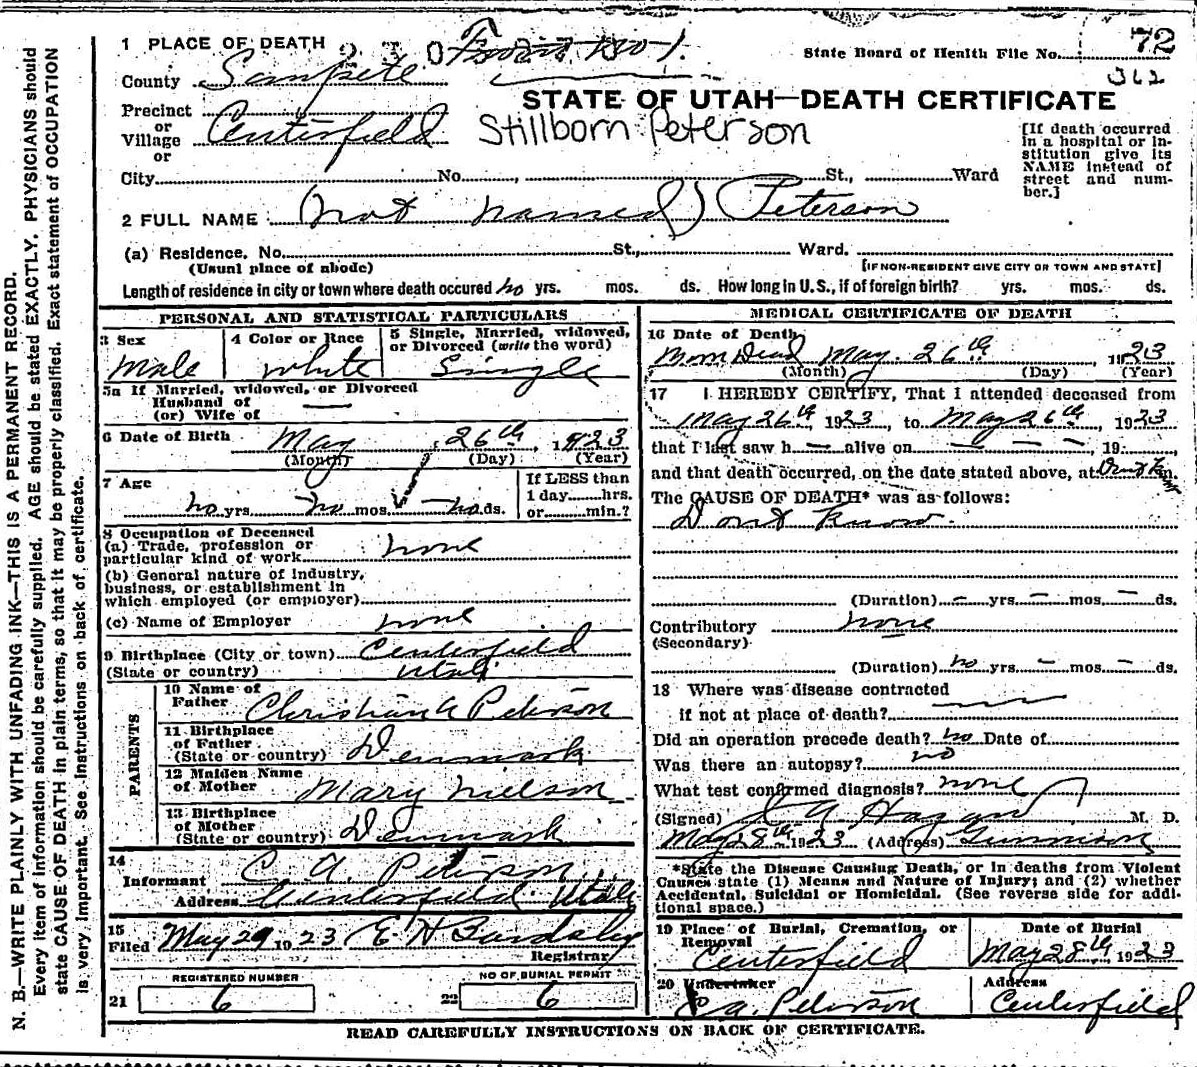 1 PLACE OF DEATH
State Board of Health File No. 72
County Sanpete
362
STATE OF UTAH—DEATH CERTIFICATE
Precinct
or
Village Centerfield
or
Stillborn Peterson
[If death occurred in a hospital or institution give its NAME instead of street and number.]
City No. , St., Ward
2 FULL NAME (not named) Peterson
(a) Residence. No. St., Ward.
(Usual place of abode) [IF NON-RESIDENT GIVE CITY OR TOWN AND STATE]
Length of residence in city or town where death occured no yrs. mos. ds. How long in U. S., if of foreign birth? yrs. mos. ds.
PERSONAL AND STATISTICAL PARTICULARS
3 Sex Male
4 Color or Race White
5 Single, Married, widowed, or Divorced (write the word) Single
5a If Married, widowed, or Divorced
Husband of
(or) Wife of —
6 Date of Birth May 26th, 1923
(Month) (Day) (Year)
7 Age
no yrs. no mos. no ds.
If LESS than
1 day hrs.
or min.?
8 Occupation of Deceased
(a) Trade, profession or
particular kind of work none
(b) General nature of Industry,
business, or establishment in
which employed (or employer)
(c) Name of Employer none
9 Birthplace (City or town) Centerfield
(State or country) Utah
PARENTS
10 Name of
Father Christian A Peterson
11 Birthplace
of Father
(State or country) Denmark
12 Maiden Name
of Mother Mary Nielson
13 Birthplace
of Mother
(State or country) Denmark
14
Informant C. A. Peterson
Address Centerfield Utah
15
Filed May 29 1923 E H Bardsley
Registrar
REGISTERED NUMBER
21 6
NO OF BURIAL PERMIT
22 6
MEDICAL CERTIFICATE OF DEATH
16 Date of Death
Born Dead May 26th, 1923
(Month) (Day) (Year)
17 I HEREBY CERTIFY, That I attended deceased from
May 26th, 1923, to May 26th, 1923
that I last saw h — alive on — — —, 19
and that death occurred, on the date stated above, at m.
The CAUSE OF DEATH* was as follows:
Dont Know
(Duration) — yrs. — mos. — ds.
Contributory none
(Secondary)
(Duration) no yrs. — mos. — ds.
18 Where was disease contracted
if not at place of death?
Did an operation precede death? no Date of
Was there an autopsy? no
What test confirmed diagnosis? none
(Signed) A Hagan M. D.
May 28th 1923 (Address) Gunnison
*State the Disease Causing Death, or in deaths from Violent
Causes state (1) Means and Nature of Injury; and (2) whether
Accidental, Suicidal or Homicidal. (See reverse side for additional space.)
19 Place of Burial, Cremation, or
Removal Centerfield
Date of Burial
May 28th, 1923
20 Undertaker
C a. Peterson
Address
Centerfield
READ CAREFULLY INSTRUCTIONS ON BACK OF CERTIFICATE.
N. B.—WRITE PLAINLY WITH UNFADING INK—THIS IS A PERMANENT RECORD.
Every item of information should be carefully supplied. AGE should be stated EXACTLY. PHYSICIANS should
state CAUSE OF DEATH in plain terms, so that it may be properly classified. Exact statement of OCCUPATION
is very important. See Instructions on back of certificate.